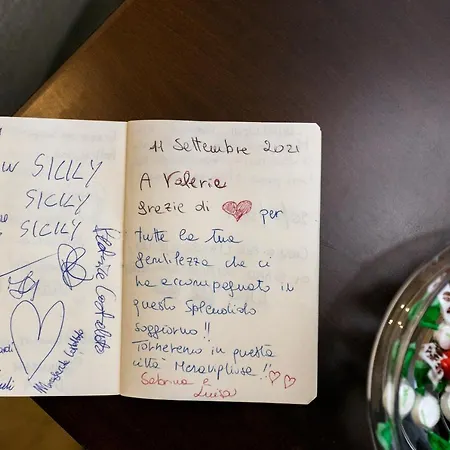 SICILY
SICILY
SICILY
11 Settembre 2021
A Valeria
grazie di ❤ per
tutte la tua
gentilezza che ci
ha accompagnato in
questo splendido
soggiorno!!
Torneremo in questa
città Meravigliosa!!
Sabrina e
Luisa